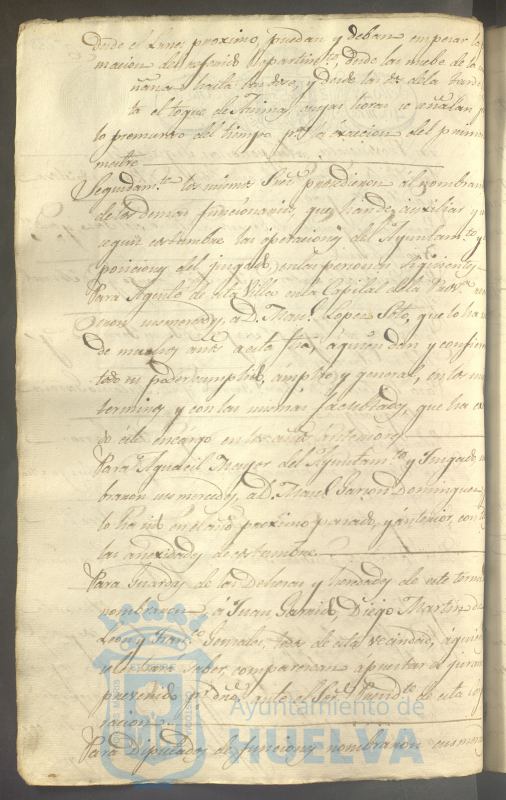 desde el Lunes proximo, puedan y deban empezar la
macion del referido Repartimto, desde las nuebe de la
ñana hasta las doce, y desde las dos de la tarde
ta el toque de Animas, cuyas horas se señalan p
lo premuroso del tiempo pa la exacion del primer
mestre
Seguidamte los mismos Sres procedieron al nombram
de los demas funcionarios, que han de auxiliar y
seguir costumbre las operaciones del Ayuntamto y
posiciones del juzgado, en las personas siguientes
Para Agente de esta Villa en la Capital de la Prova
usmercedes, a D. Manl Lopez Soto, que lo ha
de muchos años a esta fha, á quien dan y confieren
todo su poder cumplido, ámplio y general, en los
terminos y con las mismas facultades, que ha
do este encargo en los años anteriores
Para Alguacil Mayor del Ayuntamto y Juzgado
braron usmercedes, a D. Manl Garzon Dominguez
lo ha sido en el año proximo pasado, y anterior, con
las anexidades de costumbre
Para Guardas de las Dehesas y heredades de este term
nombraron á Juan Garrido, Diego Martin de
Leon y Franco Gonzales, todos de esta vecindad, á quienes
se hara saber, comparezcan a prestar el juram
prevenido pr dro ante el Sor Presidte de esta cor
racion
Para Diputados de funciones nombraron usmerc
Ayuntamiento de
HUELVA